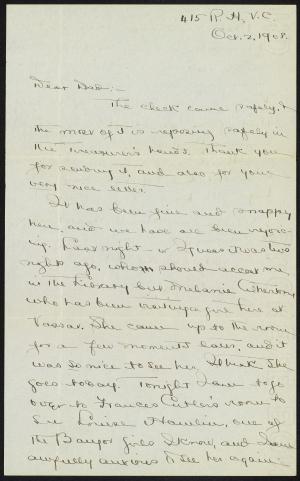 415 R. H, V. C.
Oct. 2, 1908.
Dear Dad:-
The check came safely, &
the most of it is reposing safely in
the Treasurer's hands. Thank you
for sending it, and also for your
very nice letter.
It has been fine and snappy
here, and we have all been rejoic-
ing. Last night - or I guess it was two
nights ago, whom should accost me
in the Library but Melanie
who has been visiting a girl here at
Vassar. She came up to the room
for a few moments later, and it
was so nice to see her. I think she
goes today. Tonight I am to go
over to Frances Cutler's room to
see Louise Hamlin, one of
the Bangor girls I know, and I am
awfully anxious to see her again.